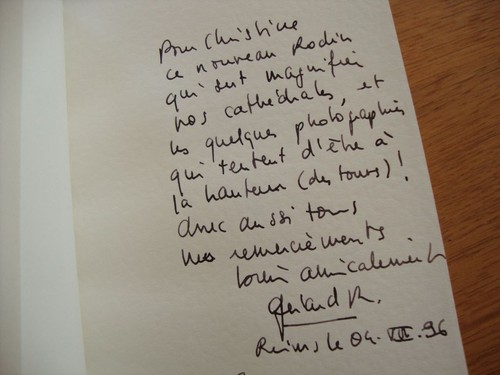 Pour Christine
ce nouveau Rodin
qui sut magnifier
nos cathédrales, et
les quelques photographies
qui tentent d'être à
la hauteur (des tours)!
avec aussi tous
mes remerciements
bien amicalement
Gérard R.
Reims le 04. VII. 96